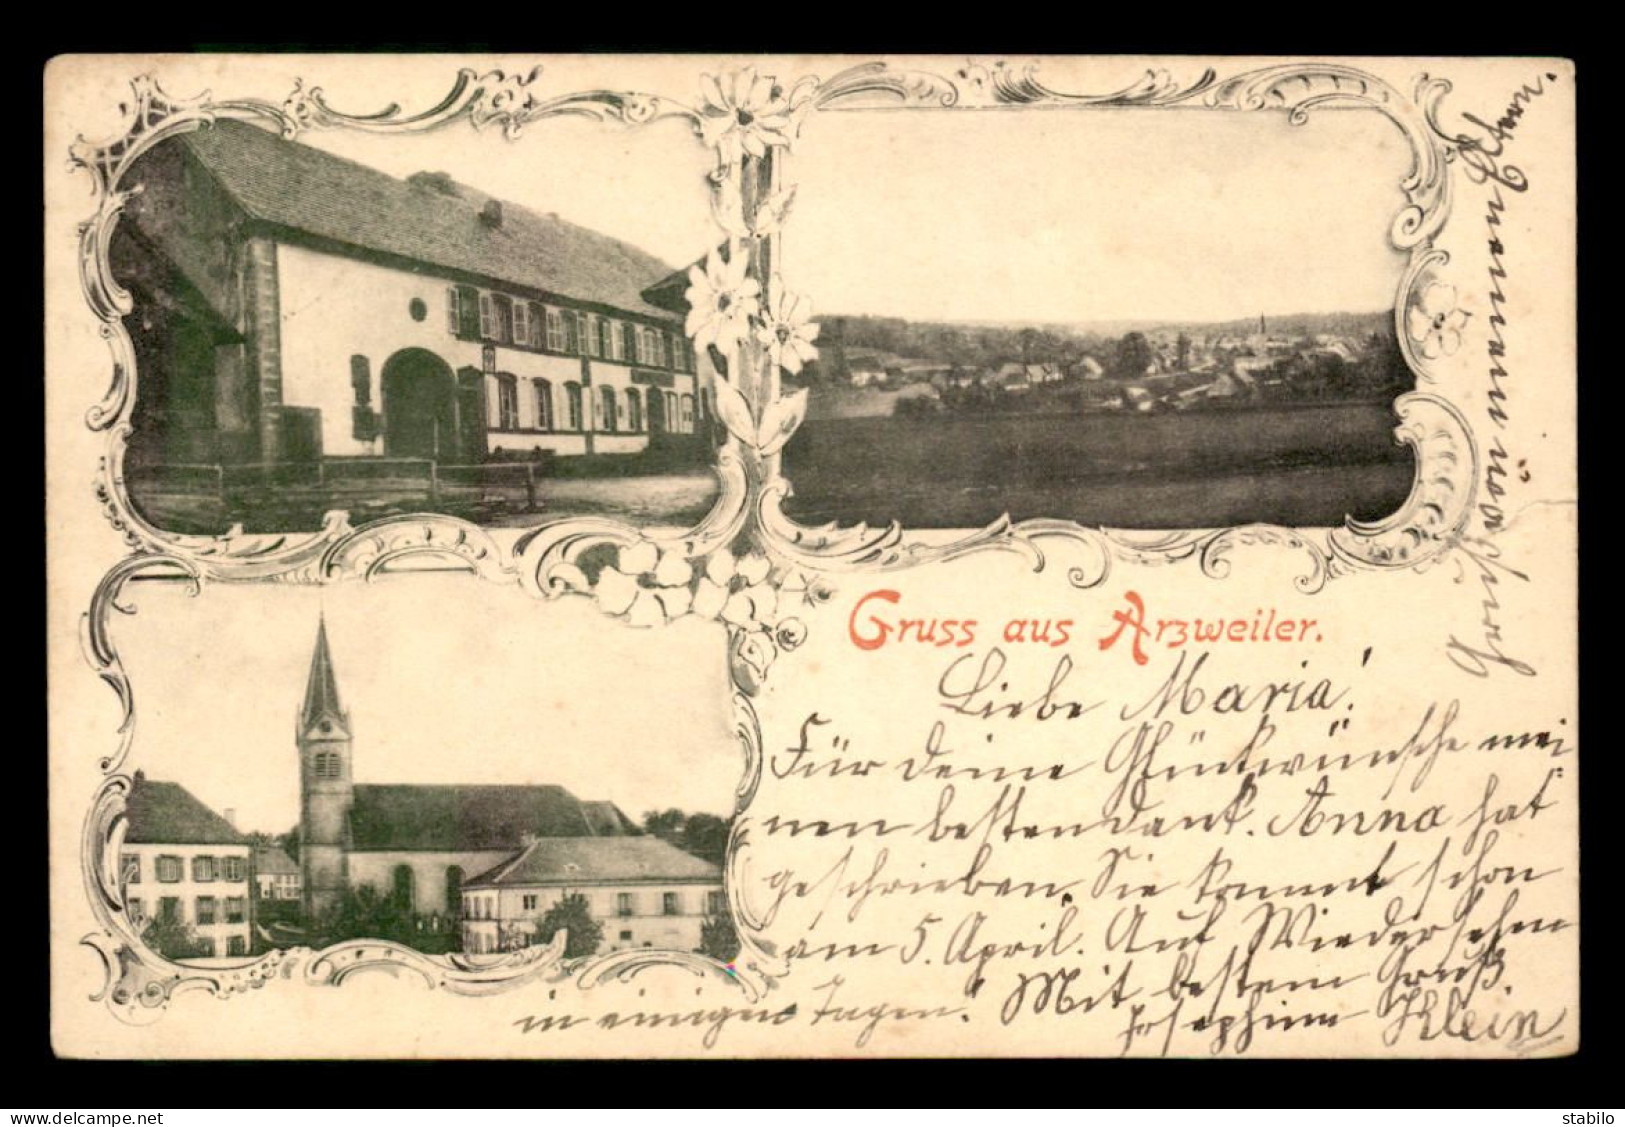 Gruss aus Arzweiler.
Liebe Maria!
Für deine Glückwünsche mei
nen besten Dank. Anna hat
geschrieben. Sie kommt schon
am 5. April. Auf Wiedersehen
in einigen Tagen! Mit bestem Gruß.
Josephine Klein
delcampe.net
stabilo